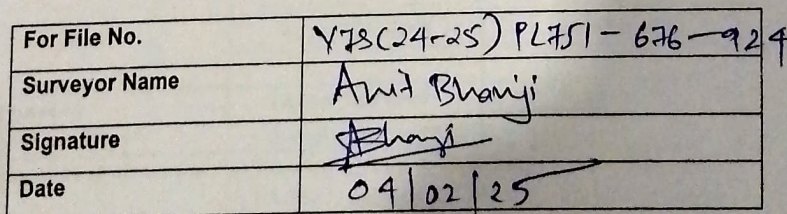 For File No. Y78(24-25) PL751-676-924
Surveyor Name Amit Bhanji
Signature ABhanji
Date 04/02/25